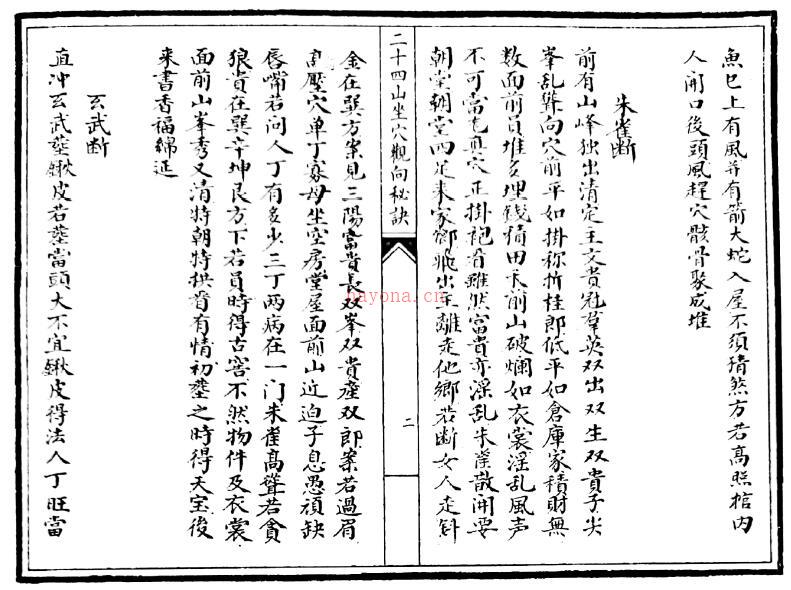 魚巳上有風并有箭大蛇入屋不須猜煞方若高照棺内
人開口後頭風趕穴骸骨聚成堆
朱雀断
前有山峰独出清定主文贵冠羣英双出双生双贵子尖
峯乱聳向穴前平如掛称折桂郎低平如倉庫家積財無
数面前員堆多埋钱積田禾前山破爛如衣裳淫乱風声
不可當也真穴正掛袍者雖然富贵亦淫乱朱雀散開要
朝堂朝堂四足来家鄉飛出主離走他鄉若断女人走斜
二十四山坐穴觀向秘訣
二
金在巽方案見三陽富貴長双峯双贵產双郎案若過眉
高壓穴单丁寡母坐空房堂屋面前山近迫子息愚頑缺
唇嘴若问人丁有多少三丁两病在一门朱雀高聳若貪
狼贵在巽辛坤艮方下若員時得古窖不然物件及衣裳
面前山峯秀又清特朝特拱看有情初塟之時得天宝後
来書香福綿延
玄武断
直冲玄武塟鍬皮若塟當頭大不宜鍬皮得法人丁旺當
nayona.cn